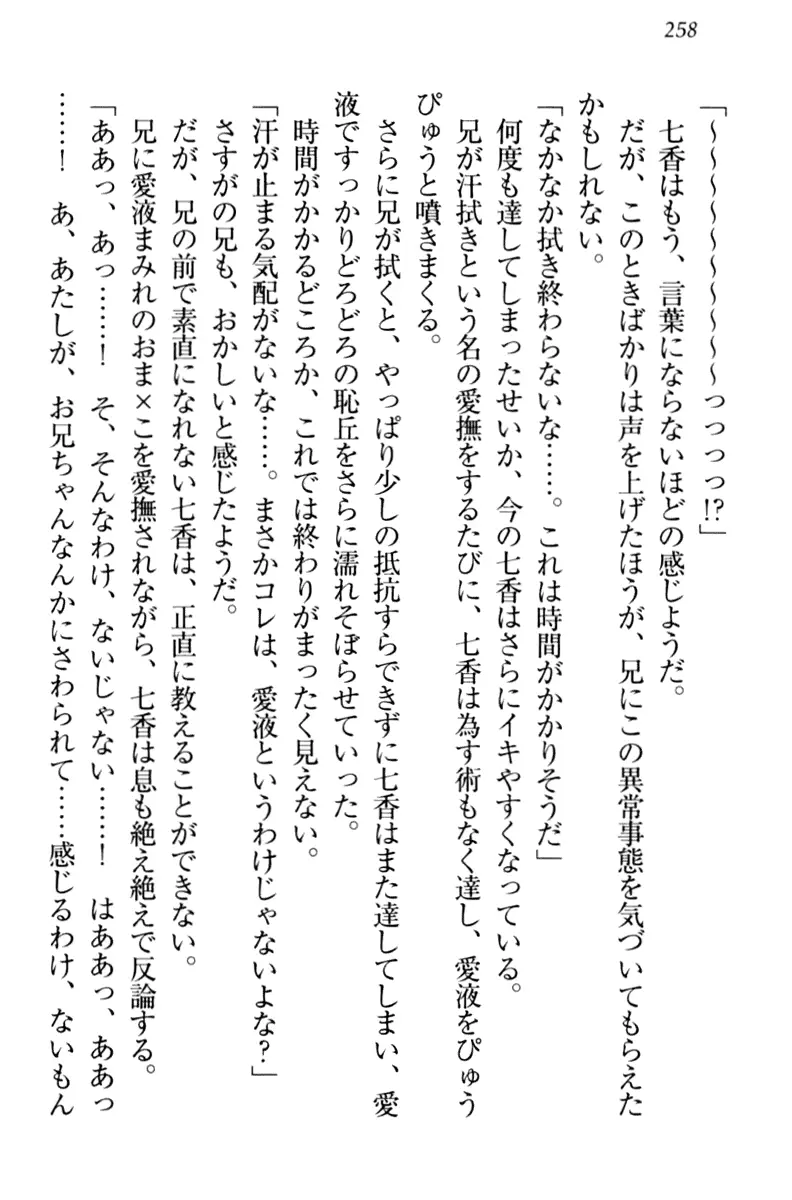 258
「～～～～～～～～～っっっっ!?」
七香はもう、言葉にならないほどの感じようだ。
だが、このときばかりは声を上げたほうが、兄にこの異常事態を気づいてもらえた
かもしれない。
「なかなか拭き終わらないな……。これは時間がかかりそうだ」
何度も達してしまったせいか、今の七香はさらにイキやすくなっている。
兄が汗拭きという名の愛撫をするたびに、七香は為す術もなく達し、愛液をぴゅう
ぴゅうと噴きまくる。
さらに兄が拭くと、やっぱり少しの抵抗すらできずに七香はまた達してしまい、愛
液ですっかりどろどろの恥丘をさらに濡れそぼらせていった。
時間がかかるどころか、これでは終わりがまったく見えない。
「汗が止まる気配がないな……。まさかコレは、愛液というわけじゃないよな？」
さすがの兄も、おかしいと感じたようだ。
だが、兄の前で素直になれない七香は、正直に教えることができない。
兄に愛液まみれのおま×こを愛撫されながら、七香は息も絶え絶えで反論する。
「ああっ、あっ……！　そ、そんなわけ、ないじゃない……！　はああっ、ああっ
……！　あ、あたしが、お兄ちゃんなんかにさわられて……感じるわけ、ないもん